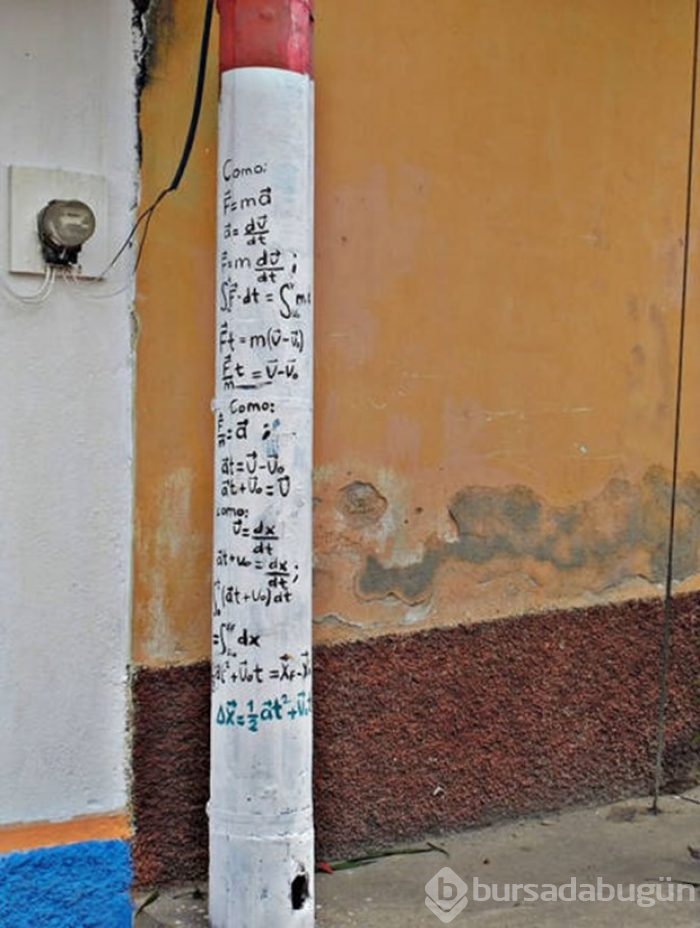 Como:
F⃗=ma⃗
a⃗=dv⃗/dt
F⃗=m dv⃗/dt;
∫F⃗·dt=∫m
F⃗t=m(v⃗-v⃗₀)
F⃗/m t=v⃗-v⃗₀
Como:
F⃗/m=a⃗;
a⃗t=v⃗-v⃗₀
a⃗t+v⃗₀=v⃗
Como:
v⃗=dx/dt
a⃗t+v₀=dx/dt;
∫(a⃗t+v₀)dt
=∫dx
at²+v⃗₀t=x⃗F-x⃗
Δx⃗=½a⃗t²+v⃗₀t
bursadabugün